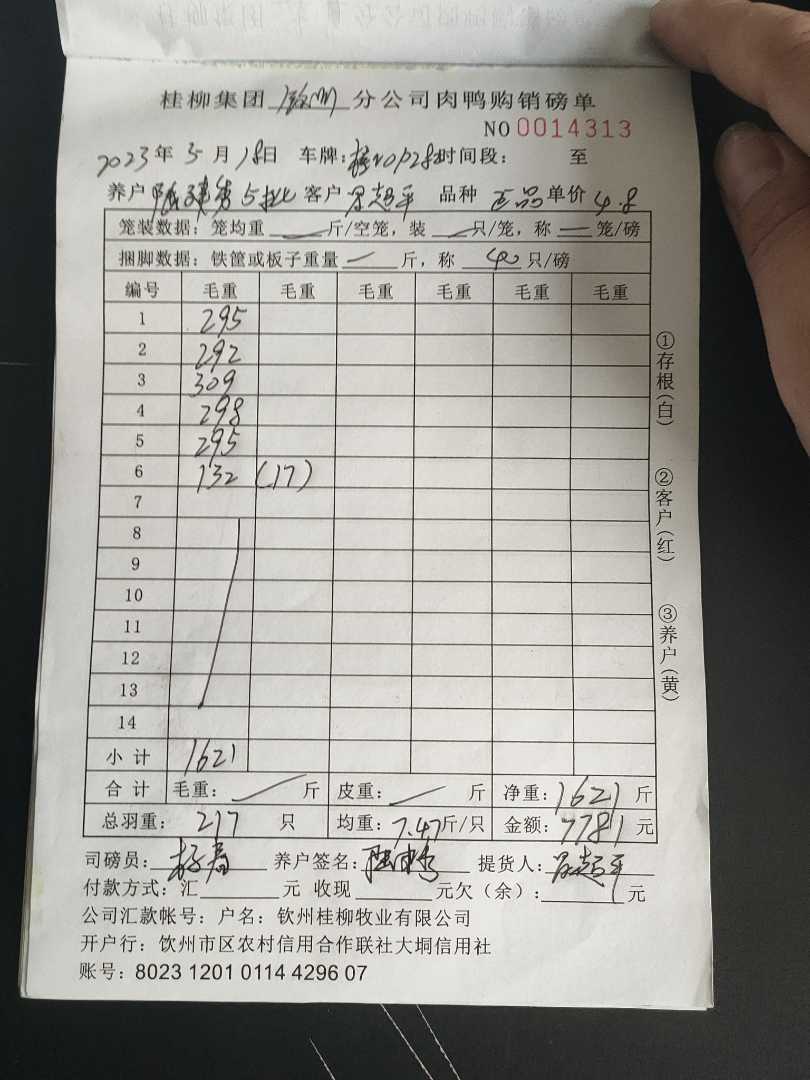 桂柳集团 钦州 分公司肉鸭购销磅单
NO 0014313
2023年5月18日 车牌: 时间段: 至
养户 5批 客户 品种 正品 单价 4.8
笼装数据: 笼均重 斤/空笼, 装 只/笼, 称 笼/磅
捆脚数据: 铁筐或板子重量 斤, 称 40 只/磅
编号 毛重 毛重 毛重 毛重 毛重 毛重
1 295
2 292
3 309
4 298
5 295
6 132 (17)
7
8
9
10
11
12
13
14
小计 1621
合计 毛重: 斤 皮重: 斤 净重: 1621 斤
总羽重: 217 只 均重: 7.47斤/只 金额: 7781 元
司磅员: 养户签名: 提货人:
付款方式: 汇 元 收现 元欠(余): 元
公司汇款帐号: 户名: 钦州桂柳牧业有限公司
开户行: 钦州市区农村信用合作联社大垌信用社
账号: 8023 1201 0114 4296 07
①存根(白)
②客户(红)
③养户(黄)